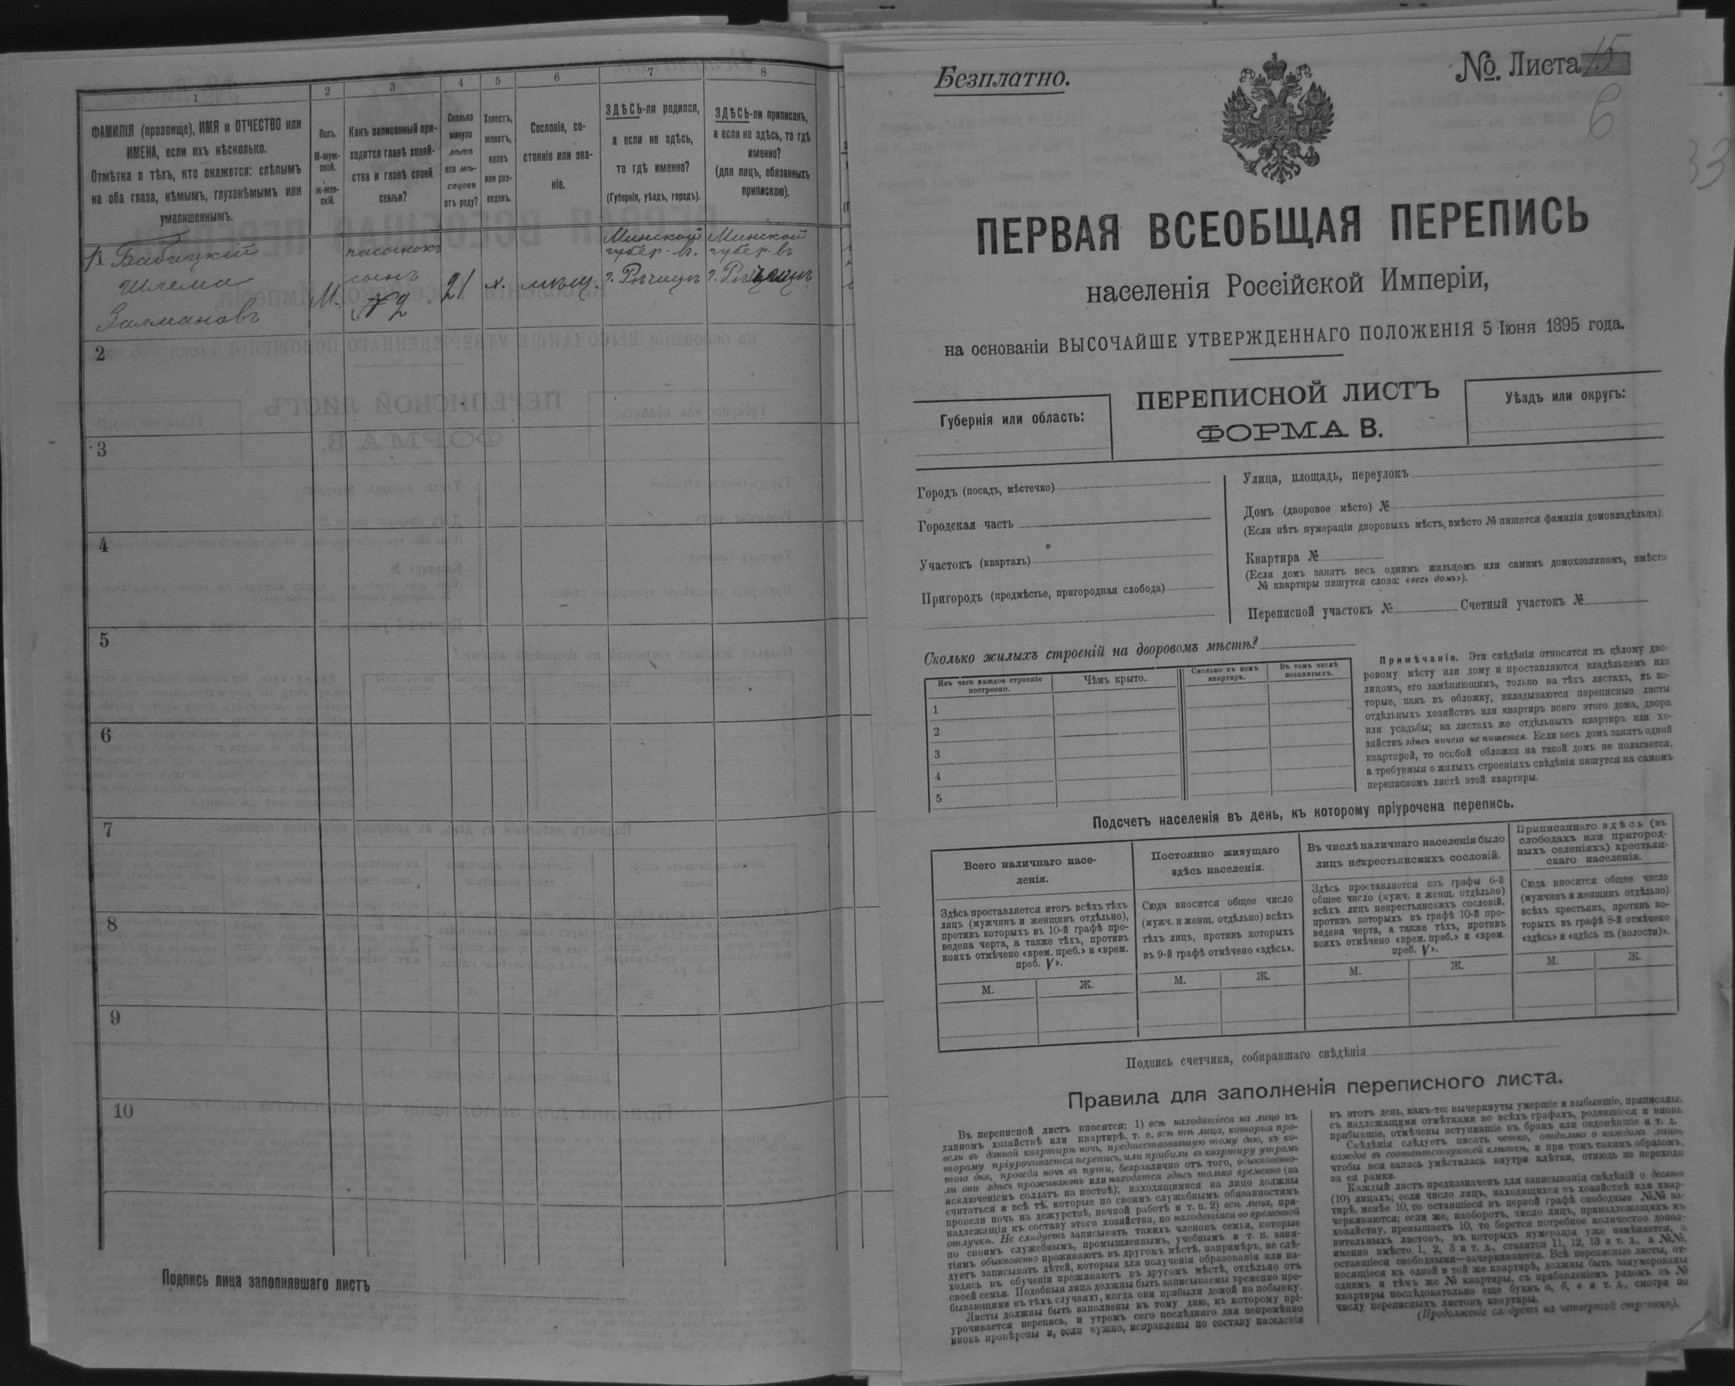 1
2
3
4
5
6
7
8
ФАМИЛІЯ (прозвище), ИМЯ и ОТЧЕСТВО или
ИМЕНА, если ихъ нѣсколько.
Отмѣтка о тѣхъ, кто окажется: слѣпымъ
на оба глаза, нѣмымъ, глухонѣмымъ или
умалишеннымъ.
Полъ.
М-муж-
ской.
Ж-жен-
скій.
Какъ записанный при-
ходится главѣ хозяй-
ства и главѣ своей
семьи?
Сколько
минуло
лѣтъ
или мѣ-
сяцевъ
отъ роду?
Холостъ,
женатъ,
вдовъ
или раз-
веденъ.
Сословіе, со-
стояніе или зва-
ніе.
ЗДѢСЬ-ли родился,
а если не здѣсь,
то гдѣ именно?
(Губернія, уѣздъ, городъ).
ЗДѢСЬ-ли приписанъ,
а если не здѣсь, то гдѣ
именно?
(для лицъ, обязанныхъ
припискою).
Бабицкій
Шлема
Залмановъ
М.
пасынокъ
сынъ
№ 2
21
х.
мѣщ.
Минской
губер. въ
г. Рѣчицѣ
Минской
губер. въ
г. Рѣчицѣ
2
3
4
5
6
7
8
9
10
Подпись лица заполнявшаго листъ
Безплатно.
№. Листа 15
6
33
ПЕРВАЯ ВСЕОБЩАЯ ПЕРЕПИСЬ
населенія Россійской Имперіи,
на основаніи ВЫСОЧАЙШЕ УТВЕРЖДЕННАГО ПОЛОЖЕНІЯ 5 Іюня 1895 года.
Губернія или область:
ПЕРЕПИСНОЙ ЛИСТЪ
ФОРМА В.
Уѣздъ или округъ:
Городъ (посадъ, мѣстечко)
Городская часть
Участокъ (кварталъ)
Пригородъ (предмѣстье, пригородная слобода)
Улица, площадь, переулокъ
Домъ (дворовое мѣсто) №
(Если нѣтъ нумераціи дворовыхъ мѣстъ, вмѣсто № пишется фамилія домовладѣльца).
Квартира №
(Если домъ занятъ весь однимъ жильцомъ или самимъ домохозяиномъ, вмѣсто
№ квартиры пишутся слова: «весь домъ»).
Переписной участокъ № Счетный участокъ №
Сколько жилыхъ строеній на дворовомъ мѣстѣ?
Изъ чего каждое строеніе
построено.
Чѣмъ крыто.
Сколько въ немъ
квартиръ.
Въ томъ числѣ
незанятыхъ.
1
2
3
4
5
Примѣчаніе. Эти свѣдѣнія относятся къ цѣлому дво-
ровому мѣсту или дому и проставляются владѣльцемъ или
лицомъ, его замѣняющимъ, только на тѣхъ листахъ, въ ко-
торые, какъ въ обложку, вкладываются переписные листы
отдѣльныхъ хозяйствъ или квартиръ всего этого дома, двора
или усадьбы; на листахъ же отдѣльныхъ квартиръ или хо-
зяйствъ здѣсь ничего не пишется. Если весь домъ занятъ одной
квартирой, то особой обложки на такой домъ не полагается,
а требуемыя о жилыхъ строеніяхъ свѣдѣнія пишутся на самомъ
переписномъ листѣ этой квартиры.
Подсчетъ населенія въ день, къ которому пріурочена перепись.
Всего наличнаго насе-
ленія.
Постоянно живущаго
здѣсь населенія.
Въ числѣ наличнаго населенія было
лицъ некрестьянскихъ сословій.
Приписаннаго здѣсь (въ
слободахъ или пригород-
ныхъ селеніяхъ) крестьян-
скаго населенія.
Здѣсь проставляется итогъ всѣхъ тѣхъ
лицъ (мужчинъ и женщинъ отдѣльно),
противъ которыхъ въ 10-й графѣ про-
ведена черта, а также тѣхъ, противъ
коихъ отмѣчено «врем. преб.» и «врем.
преб. V».
Сюда вносится общее число
(мужч. и женщ. отдѣльно) всѣхъ
тѣхъ лицъ, противъ которыхъ
въ 9-й графѣ отмѣчено «здѣсь».
Здѣсь проставляется изъ графы 6-й
общее число (мужч. и женщ. отдѣльно)
всѣхъ лицъ некрестьянскихъ сословій,
противъ которыхъ въ графѣ 10-й про-
ведена черта, а также тѣхъ, противъ
коихъ отмѣчено «врем. преб.» и «врем.
преб. V».
Сюда вносится общее число
(мужчинъ и женщинъ отдѣльно)
всѣхъ крестьянъ, противъ ко-
торыхъ въ графѣ 8-й отмѣчено
«здѣсь» и «здѣсь къ (волости)».
М.
Ж.
М.
Ж.
М.
Ж.
М.
Ж.
Подпись счетчика, собиравшаго свѣдѣнія
Правила для заполненія переписного листа.
Въ переписной листъ вносятся: 1) всѣ находящіеся на лицо въ
данномъ хозяйствѣ или квартирѣ, т. е. всѣ тѣ лица, которыя про-
вели въ данной квартирѣ ночь, предшествовавшую тому дню, къ ко-
торому пріурочивается перепись, или прибыли въ квартиру утромъ
того дня, проведя ночь въ пути, безразлично отъ того, обыкновенно-
ли они здѣсь проживаютъ или находятся здѣсь только временно (за
исключеніемъ солдатъ на постоѣ); находящимися на лицо должны
считаться и всѣ тѣ, которые по своимъ служебнымъ обязанностямъ
провели ночь на дежурствѣ, ночной работѣ и т. п. 2) всѣ лица, при-
надлежащія къ составу этого хозяйства, но находящіяся во временной
отлучкѣ. Не слѣдуетъ записывать такихъ членовъ семьи, которые
по своимъ служебнымъ, промышленнымъ, учебнымъ и т. п. заня-
тіямъ обыкновенно проживаютъ въ другомъ мѣстѣ, напримѣръ, не слѣ-
дуетъ записывать дѣтей, которыя для полученія образованія или на-
ходясь въ обученіи проживаютъ въ другомъ мѣстѣ, отдѣльно отъ
своей семьи. Подобныя лица должны быть записываемы временно пре-
бывающими въ тѣхъ случаяхъ, когда они прибыли домой на побывку.
Листы должны быть заполнены къ тому дню, къ которому прі-
урочивается перепись, и утромъ сего послѣдняго дня непремѣнно
вновь провѣрены и, если нужно, исправлены по составу населенія
въ этотъ день, какъ-то: вычеркнуты умершіе и выбывшіе, приписаны,
съ надлежащими отмѣтками во всѣхъ графахъ, родившіеся и вновь
прибывшіе, отмѣчены вступившіе въ бракъ или овдовѣвшіе и т. д.
Свѣдѣнія слѣдуетъ писать четко, отдѣльно о каждомъ лицѣ,
каждое въ соотвѣтствующей клѣткѣ, и при томъ такимъ образомъ,
чтобы вся запись умѣстилась внутри клѣтки, отнюдь не переходя
за ея рамки.
Каждый листъ предназначенъ для записыванія свѣдѣній о десяти
(10) лицахъ; если число лицъ, находящихся въ хозяйствѣ или квар-
тирѣ, менѣе 10, то оставшіеся въ первой графѣ свободные №№ за-
черкиваются; если же, наоборотъ, число лицъ, принадлежащихъ къ
хозяйству, превышаетъ 10, то берется потребное количество допол-
нительныхъ листовъ, въ которыхъ нумерація уже измѣняется, а
именно вмѣсто 1, 2, 3 и т. д., ставится 11, 12, 13 и т. д., а №№,
оставшіеся свободными—зачеркиваются. Всѣ переписные листы, от-
носящіеся къ одной и той же квартирѣ, должны быть занумерованы
однимъ и тѣмъ же № квартиры, съ прибавленіемъ рядомъ съ №
квартиры послѣдовательно еще буквъ а, б, в и т. д., смотря по
числу переписныхъ листовъ квартиры.
(Продолженіе слѣдуетъ на четвертой страницѣ).